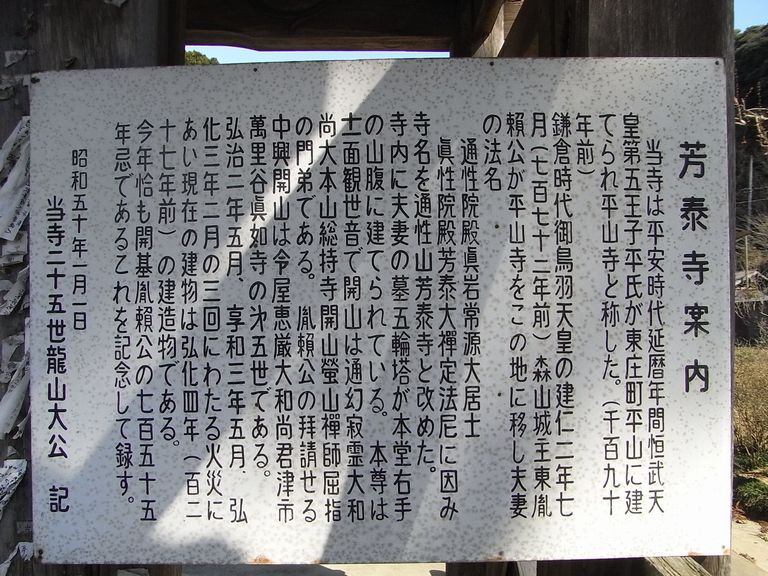 芳泰寺案内
当寺は平安時代延暦年間恒武天
皇第五王子平氏が東庄町平山に建
てられ平山寺と称した。(千百九十
年前)
鎌倉時代御鳥羽天皇の建仁二年七
月(七百七十二年前)森山城主東胤
頼公が平山寺をこの地に移し夫妻
の法名
通性院殿眞岩常源大居士
眞性院殿芳泰大禪定法尼に因み
寺名を通性山芳泰寺と改めた。
寺内に夫妻の墓五輪塔が本堂右手
の山腹に建てられている。本尊は
十一面観世音で開山は通幻寂霊大和
尚大本山総持寺開山螢山禪師屈指
の門弟である。胤頼公の拜請せる
中興開山は令屋恵厳大和尚君津市
萬里谷眞如寺の㐧五世である。
弘治二年五月、享和三年五月、弘
化三年二月の三回にわたる火災に
あい現在の建物は弘化四年(百二
十七年前)の建造物である。
今年恰も開基胤頼公の七百五十五
年忌であるこれを記念して録す。
昭和五十年一月一日
当寺二十五世龍山大公 記